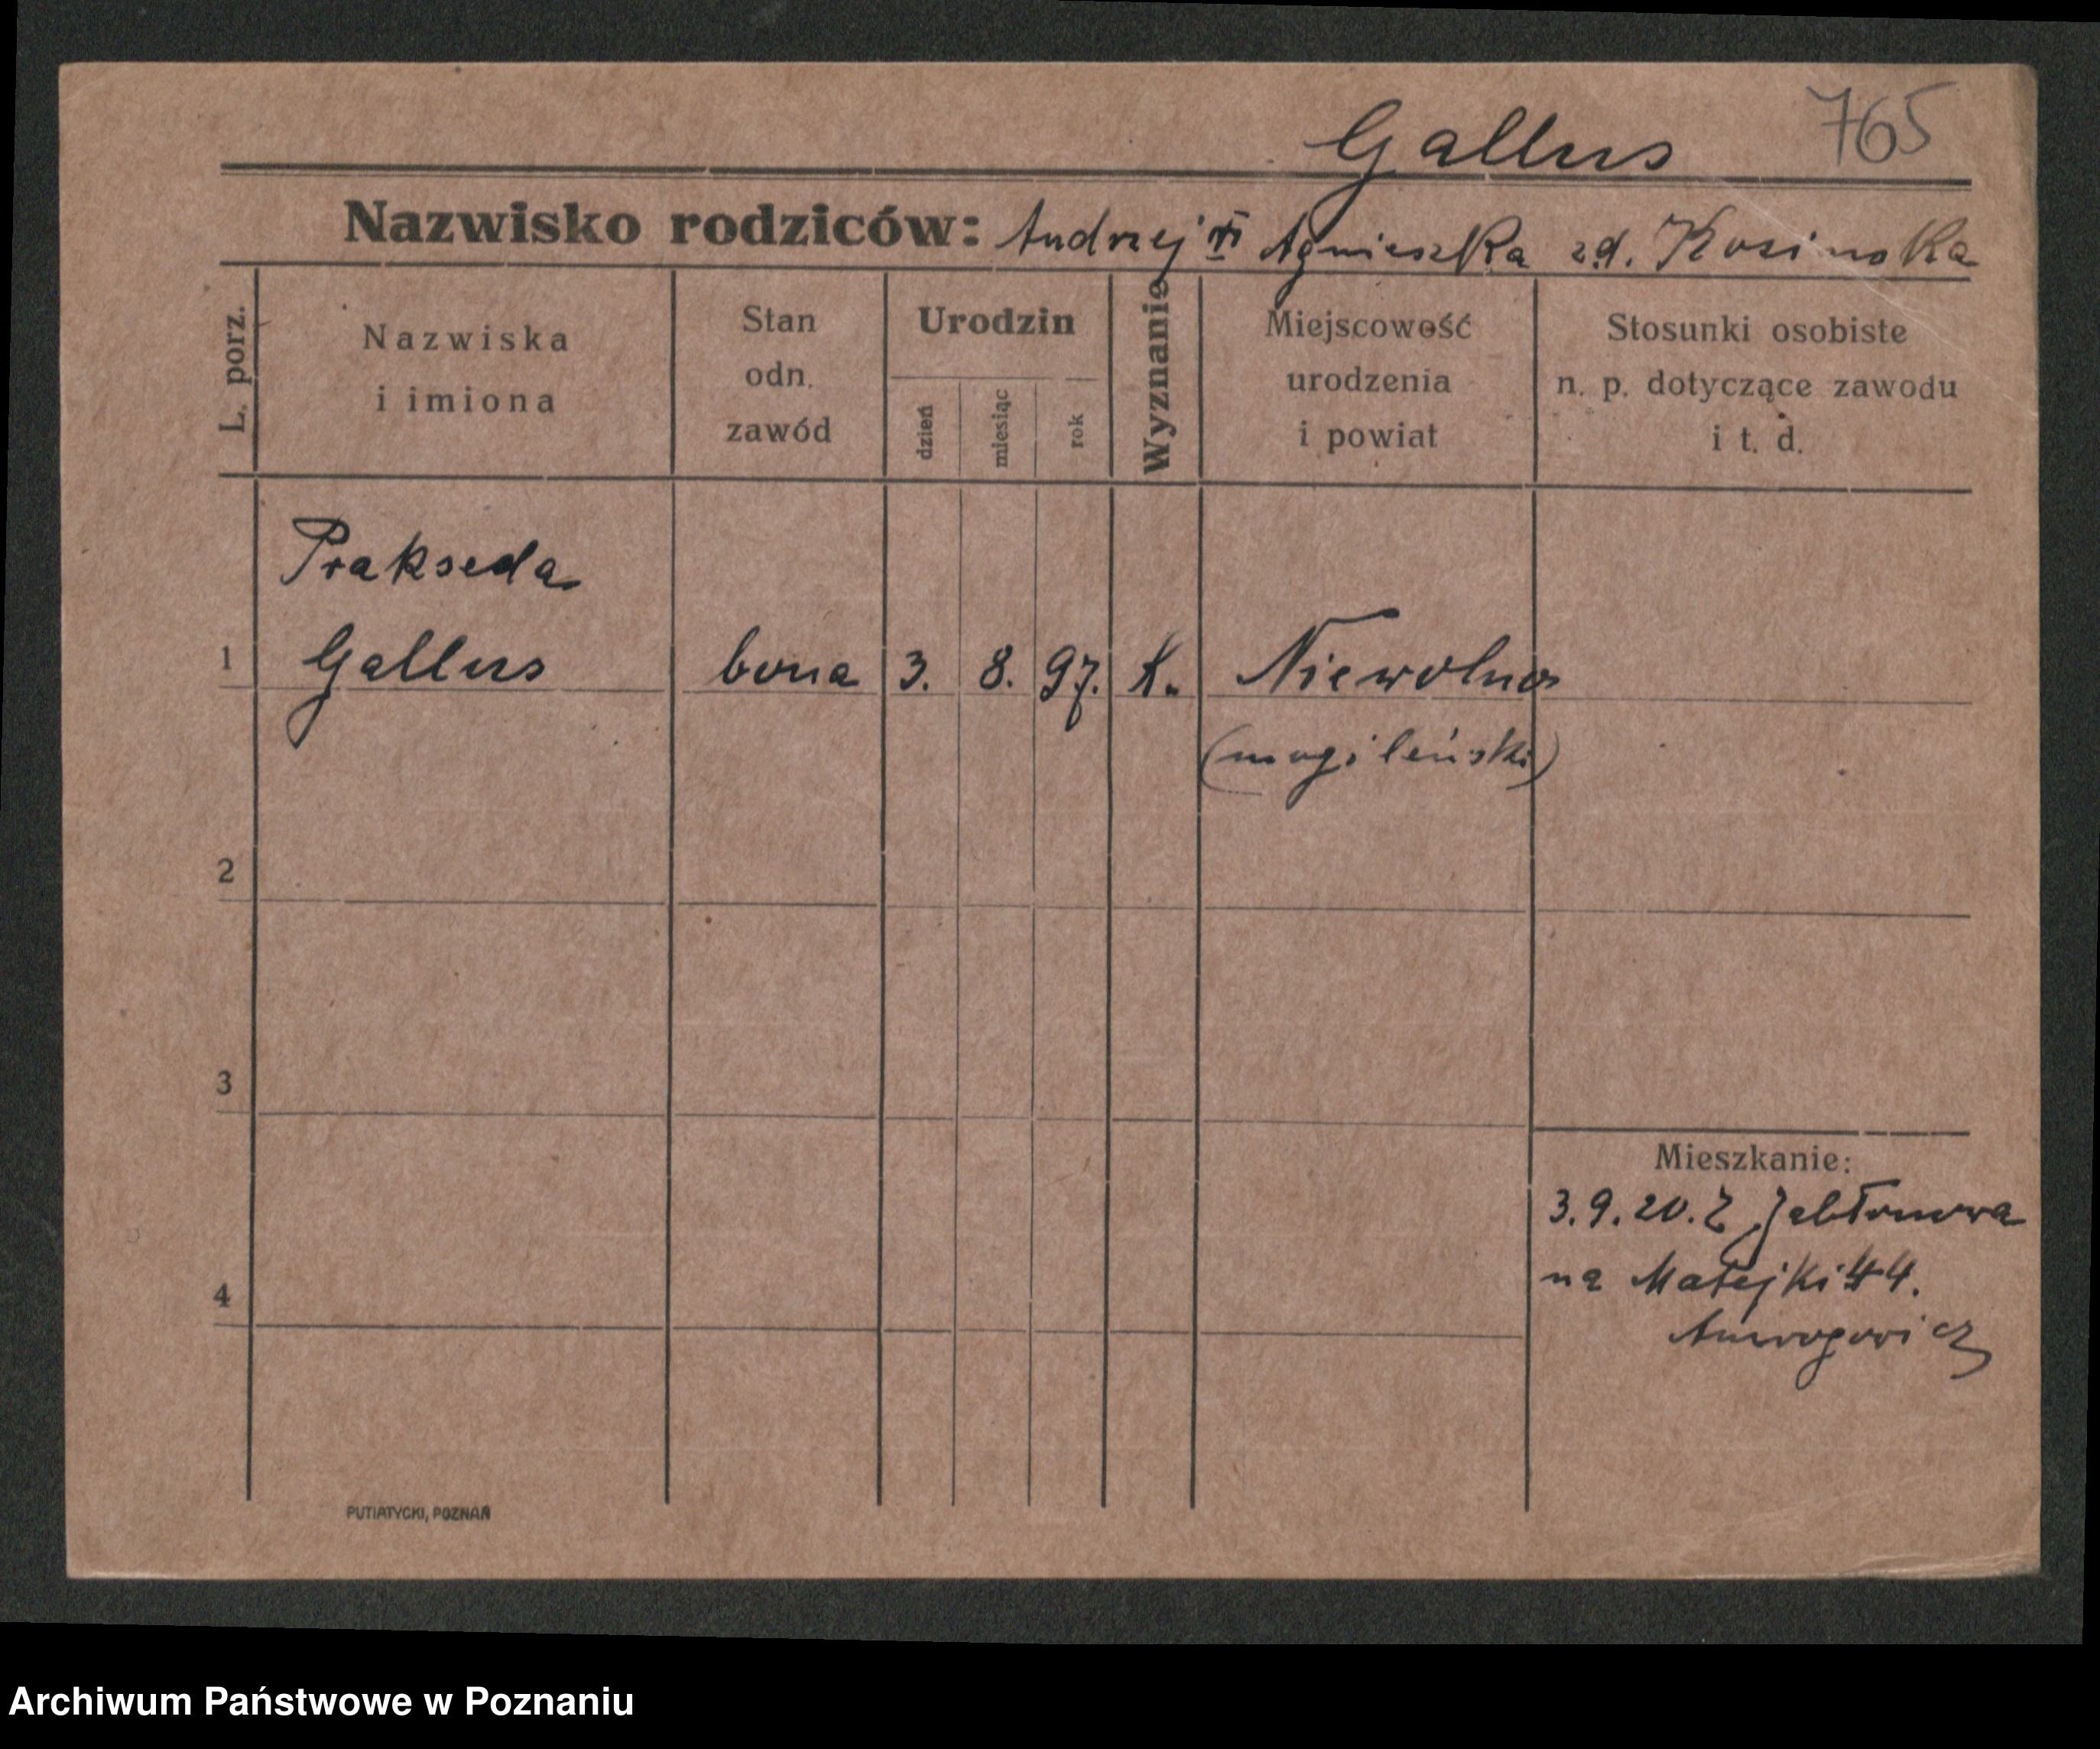 Gallus 765
Nazwisko rodziców: Andrzej i Agnieszka zd. Kosinska
L. porz.
Nazwiska
i imiona
Stan
odn.
zawód
Urodzin
dzień
miesiąc
rok
Wyznanie
Miejscowość
urodzenia
i powiat
Stosunki osobiste
n. p. dotyczące zawodu
i t. d.
Prakseda
1 Gallus bona 3. 8. 97. K. Niewolno
(mogileński)
2
3
4
Mieszkanie:
3.9.20. Z Jabłonowa
na Matejki 44.
PUTIATYCKI, POZNAŃ
Archiwum Państwowe w Poznaniu